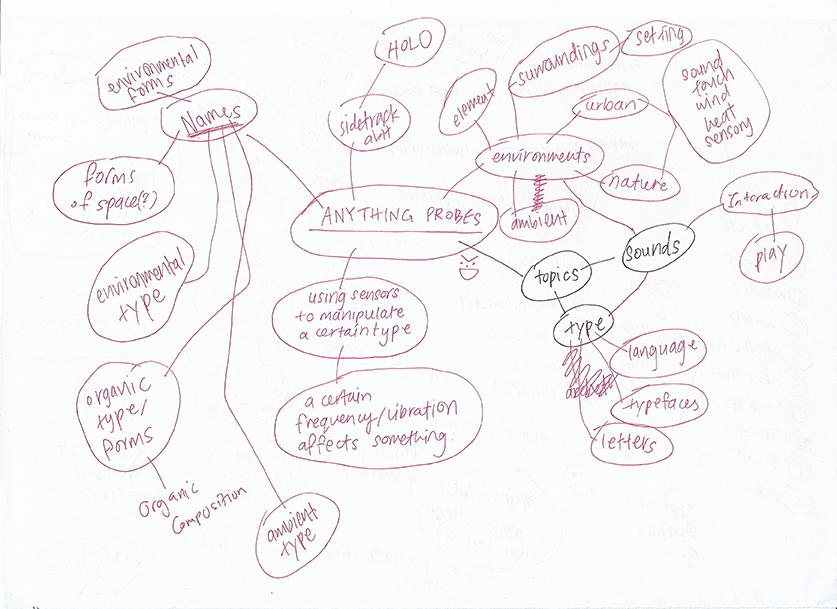 HOLO
environmental
forms
Names
sidetrack
abit
element
surroundings
setting
urban
sound
touch
wind
heat
sensory
environments
nature
ambient
forms
of space(?)
ANYTHING PROBES
sounds
Interaction
play
topics
environmental
type
using sensors
to manipulate
a certain type
type
language
typefaces
letters
organic
type/
forms
a certain
frequency/vibration
affects something.
Organic
Composition
ambient
type